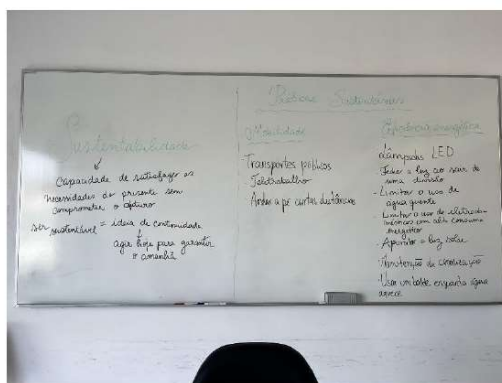 Sustentabilidade
Capacidade de satisfazer as
necessidades do presente sem
comprometer o futuro
ser sustentável = ideia de continuidade
agir hoje para garantir
o amanhã
Práticas Sustentáveis
Mobilidade
Transportes públicos
Teletrabalho
Andar a pé curtas distâncias
Eficiência energética
Lâmpadas LED
Fechar a luz ao sair de
uma divisão
- Limitar o uso de
água quente
- Limitar o uso de eletrodo-
mésticos com alto consumo
energético
- Aproveitar a luz solar
- Manutenção da canalização
- Usar um balde enquanto água
aquece